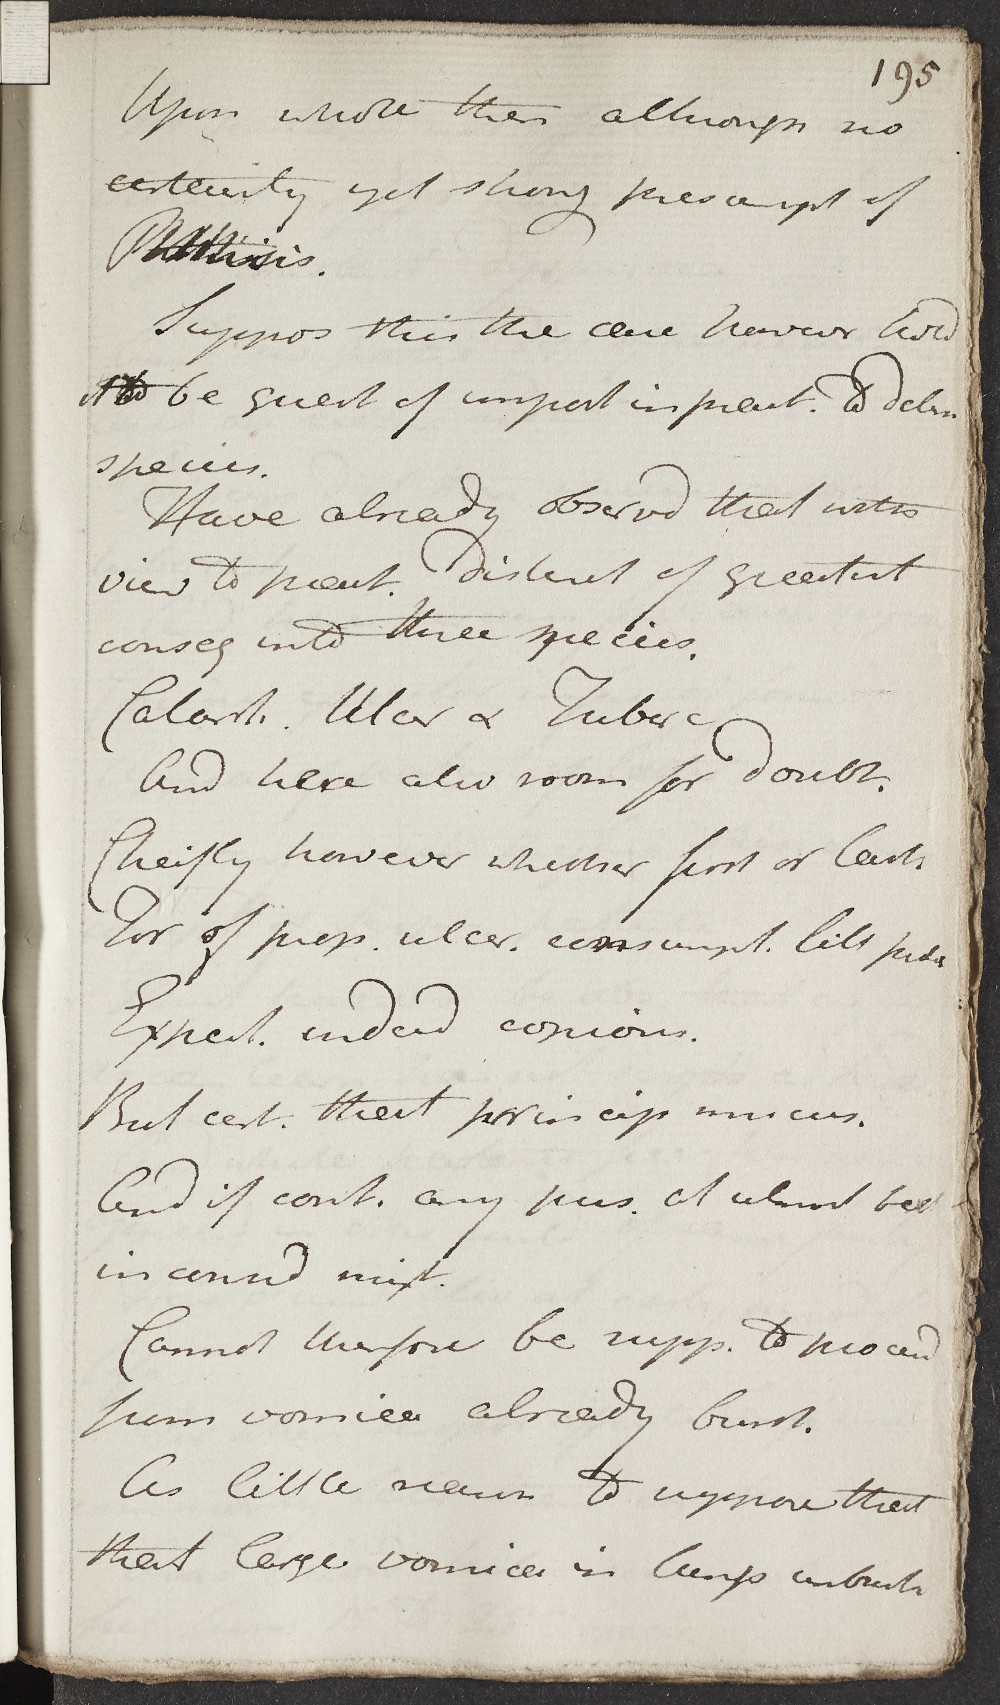 195
Upon whole then although no
certainty yet strong presumpt of
Phthisis.
Suppos this the case however hold
it to be quest of import in pract. to determ
species.
Have already observd that with
view to pract. distinct of greatest
conseq into three species.
Catarrh. Ulcer & Tuberc
And here also room for doubt.
Cheifly however whether first or last.
For of prop. ulcer. consumpt. litt
Expect. indeed copious.
But cert. that princip mucus.
And if cont. any pus. at utmost but
in consid mixt.
Cannot therfore be supp. to proceed
from vomica already burst.
As little reason to suppose that
that large vomica in lungs unburst